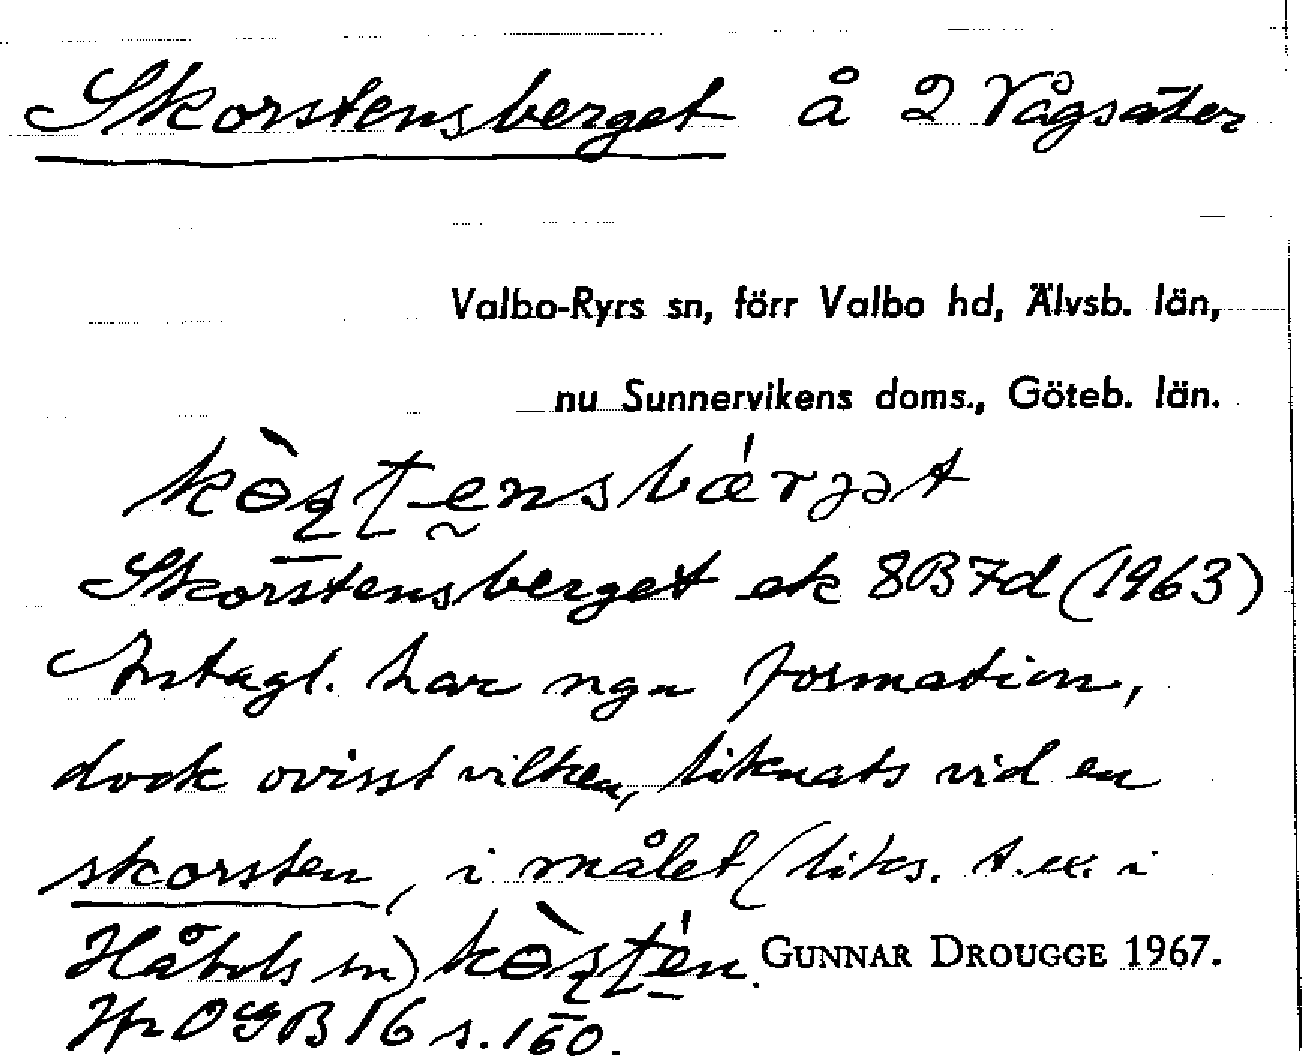 Skorstensberget å 2 Vågsäter
Valbo-Ryrs sn, förr Valbo hd, Älvsb. län,
nu Sunnervikens doms., Göteb. län.
Skorstensberget ek 8B7d (1963)
Antagl. har ngn formation,
dock ovisst vilken, liknats vid en
skorsten, i målet (liks. t.ex. i
Håbols sn) GUNNAR DROUGGE 1967.
Jfr OGB 16 s. 150.